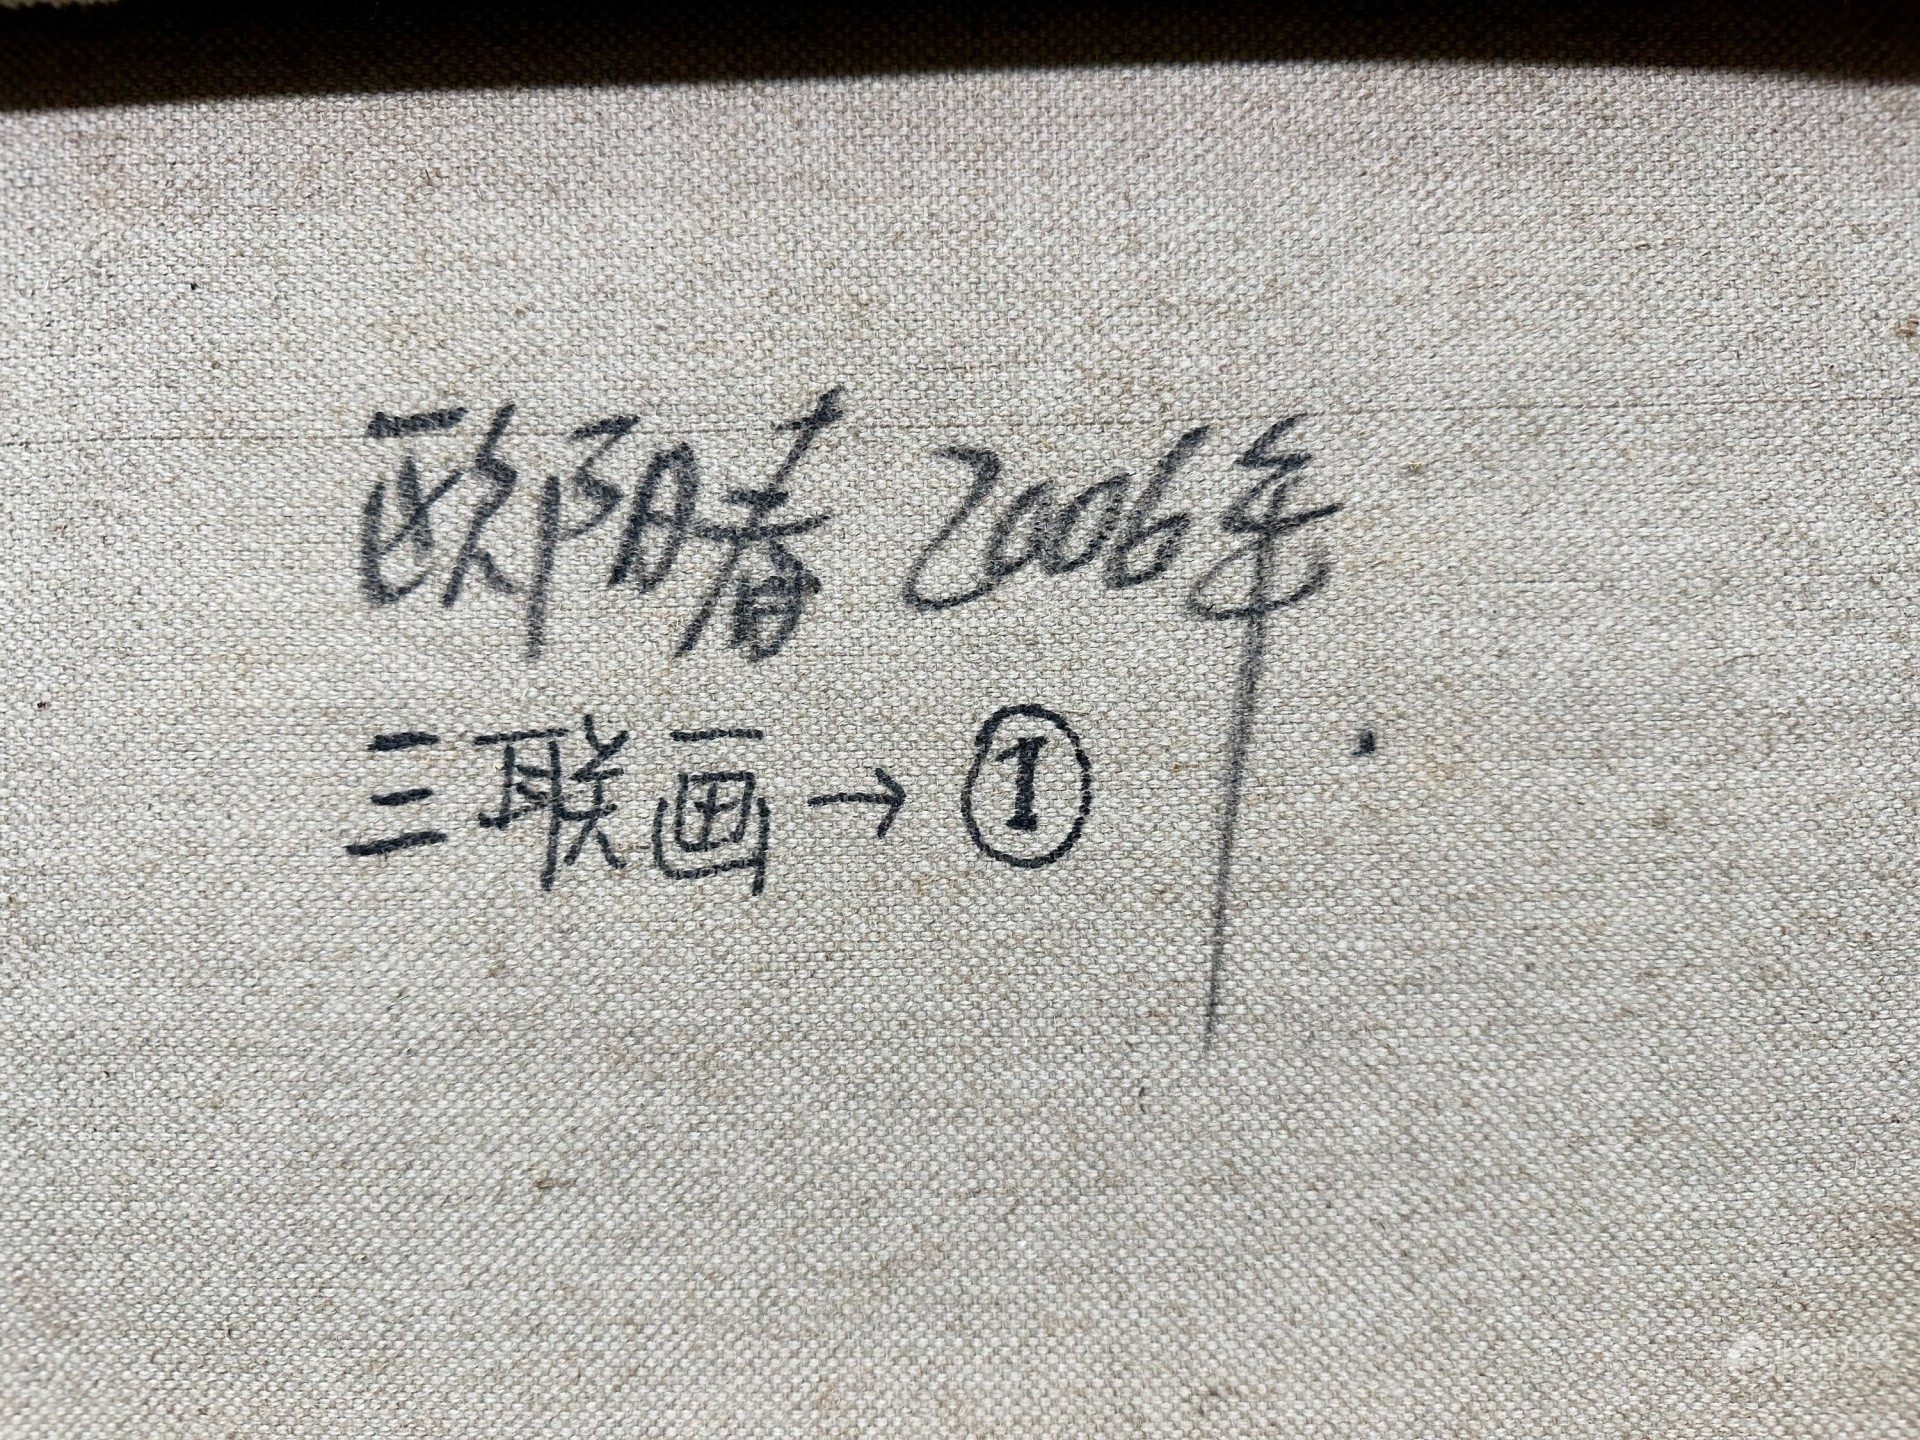 欧阳春 2006年
三联画→①